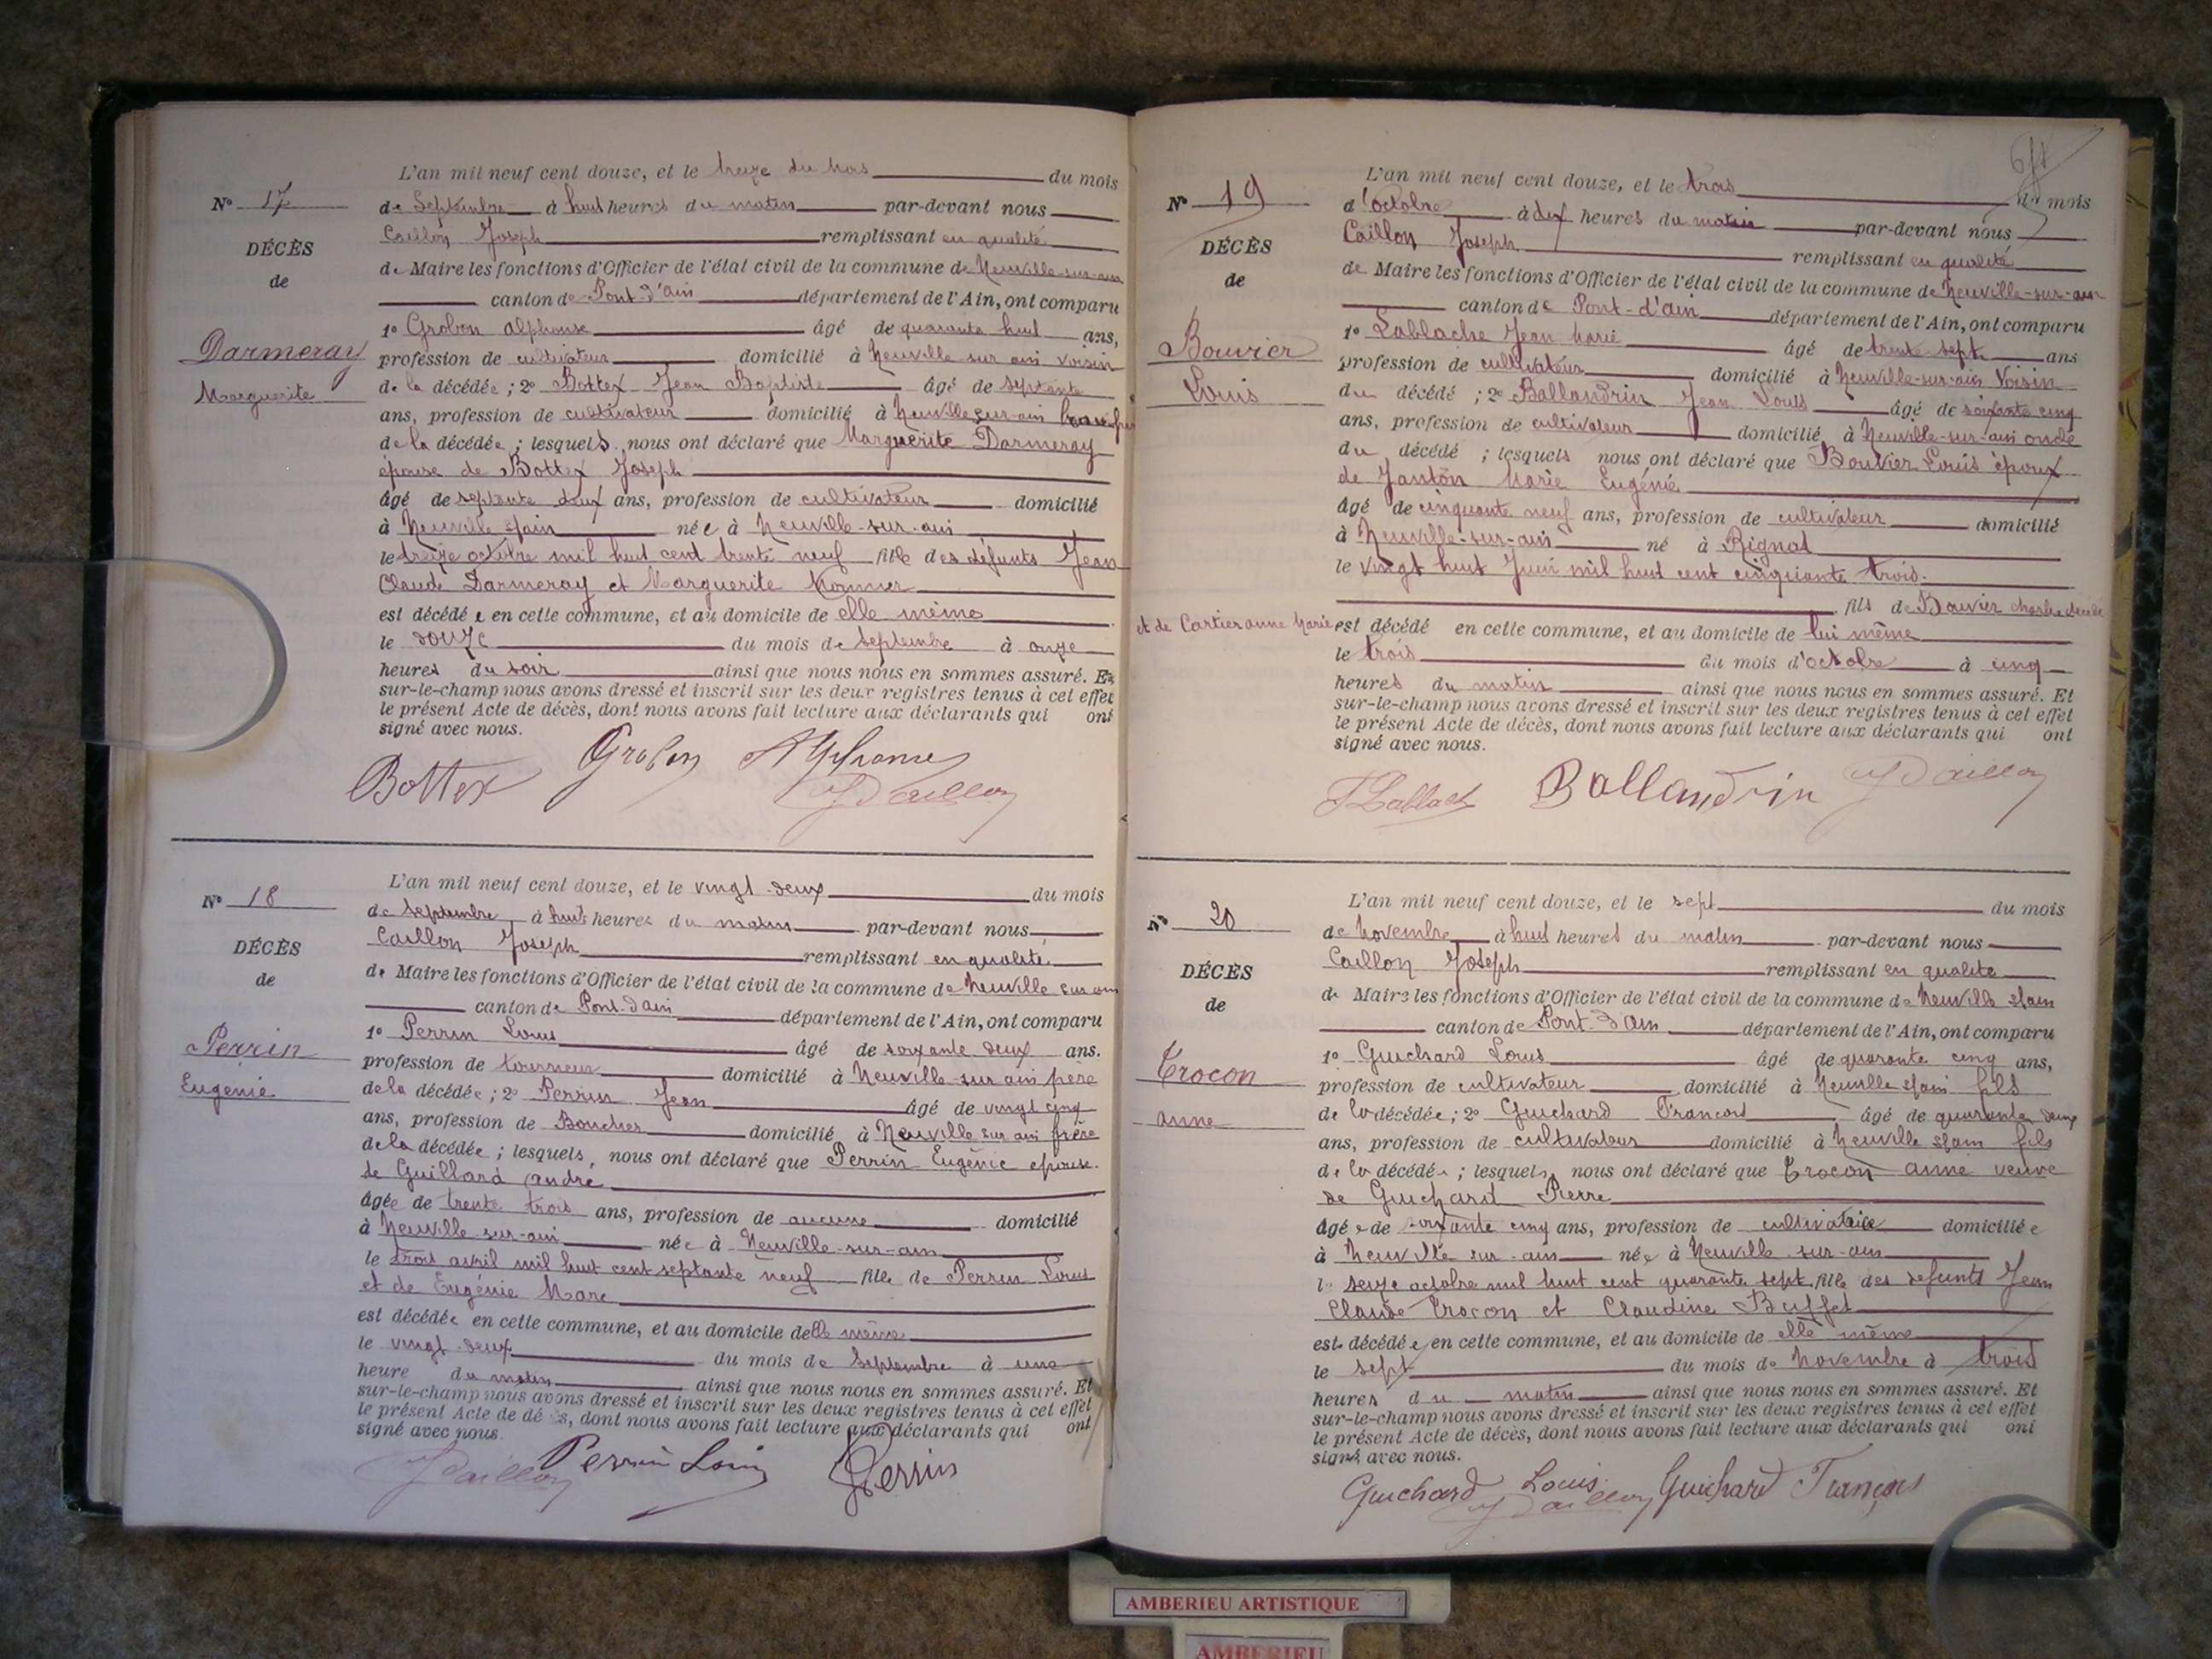 L'an mil neuf cent douze, et le treize du mois du mois
N° 17
de Septembre à huit heures du matin par-devant nous
Caillon Joseph remplissant en qualité
DÉCÈS
de Maire les fonctions d'Officier de l'état civil de la commune de Neuville-sur-ain
de
canton de Pont-d'ain département de l'Ain, ont comparu
1° Grobon alphonse âgé de quarante huit ans,
Darmeray
profession de cultivateur domicilié à Neuville sur ain voisin
de la décédée ; 2° Bottex Jean Baptiste âgé de septante
Marguerite
ans, profession de cultivateur domicilié à Neuville sur-ain
de la décédée ; lesquels nous ont déclaré que Marguerite Darmeray
épouse de Bottex Joseph
âgé de septante deux ans, profession de cultivateur domicilié
à Neuville s/ain née à Neuville-sur-ain
le treize octobre mil huit cent trente neuf fille des défunts Jean
Claude Darmeray et Marguerite
est décédée en cette commune, et au domicile de elle même
le douze du mois de septembre à onze
heures du soir ainsi que nous nous en sommes assuré. Et
sur-le-champ nous avons dressé et inscrit sur les deux registres tenus à cet effet
le présent Acte de décès, dont nous avons fait lecture aux déclarants qui ont
signé avec nous.
Bottex Grobon Alphonse JCaillon
L'an mil neuf cent douze, et le vingt-deux du mois
N° 18
de septembre à huit heures du matin par-devant nous
Caillon Joseph remplissant en qualité
DÉCÈS
de Maire les fonctions d'Officier de l'état civil de la commune de Neuville sur ain
de
canton de Pont-d'ain département de l'Ain, ont comparu
1° Perrin Louis âgé de soixante deux ans.
Perrin
profession de tourneur domicilié à Neuville-sur ain père
Eugénie
de la décédée ; 2° Perrin Jean âgé de vingt cinq
ans, profession de Boucher domicilié à Neuville sur ain frère
de la décédée ; lesquels, nous ont déclaré que Perrin Eugénie epouse
de Guillard andré
âgée de trente trois ans, profession de aucune domicilié
à Neuville-sur-ain née à Neuville-sur-ain
le trois avril mil huit cent septante neuf fille de Perrin Louis
et de Eugénie Marc
est décédée en cette commune, et au domicile delle même
le vingt-deux du mois de Septembre à une
heure du matin ainsi que nous nous en sommes assuré. Et
sur-le-champ nous avons dressé et inscrit sur les deux registres tenus à cet effet
le présent Acte de décès, dont nous avons fait lecture aux déclarants qui ont
signé avec nous.
JCaillon Perrin Louis JPerrin
L'an mil neuf cent douze, et le trois du mois
N° 19
d'octobre à dix heures du matin par-devant nous
Caillon Joseph remplissant en qualité
DÉCÈS
de Maire les fonctions d'Officier de l'état civil de la commune de Neuville-sur-ain
de
canton de Pont-d'ain département de l'Ain, ont comparu
1° Lablache Jean Marie âgé de trente sept ans
Bouvier
profession de cultivateur domicilié à Neuville-sur-ain Voisin
Louis
du décédé ; 2° Ballandrin Jean Louis âgé de soixante cinq
ans, profession de cultivateur domicilié à Neuville-sur-ain oncle
du décédé ; lesquels nous ont déclaré que Bouvier Louis époux
de Janton Marie Eugénie
âgé de cinquante neuf ans, profession de cultivateur domicilié
à Neuville-sur-ain né à Rignat
le vingt huit Juin mil huit cent cinquante trois.
fils de Bouvier Charles
et de Cartier anne Marie est décédé en cette commune, et au domicile de lui même
le trois du mois d'octobre à cinq
heures du matin ainsi que nous nous en sommes assuré. Et
sur-le-champ nous avons dressé et inscrit sur les deux registres tenus à cet effet
le présent Acte de décès, dont nous avons fait lecture aux déclarants qui ont
signé avec nous.
Ballandrin JCaillon
L'an mil neuf cent douze, et le sept du mois
N° 20
de Novembre à huit heures du matin par-devant nous
Caillon Joseph remplissant en qualité
DÉCÈS
de Maire les fonctions d'Officier de l'état civil de la commune de Neuville s/ain
de
canton de Pont-d'ain département de l'Ain, ont comparu
1° Guichard Louis âgé de quarante cinq ans,
Crocon
profession de cultivateur domicilié à Neuville s/ain fils
anne
de la décédée ; 2° Guichard Francois âgé de quarante deux
ans, profession de cultivateur domicilié à Neuville s/ain fils
de la décédée ; lesquels nous ont déclaré que Crocon anne veuve
de Guichard Pierre
âgée de soixante cinq ans, profession de cultivatrice domiciliée
à Neuville sur-ain née à Neuville-sur-ain
le seize octobre mil huit cent quarante sept fille des defunts Jean
Claude Crocon et Claudine Buffet
est décédée en cette commune, et au domicile de elle même
le sept du mois de Novembre à trois
heures du matin ainsi que nous nous en sommes assuré. Et
sur-le-champ nous avons dressé et inscrit sur les deux registres tenus à cet effet
le présent Acte de décès, dont nous avons fait lecture aux déclarants qui ont
signé avec nous.
Guichard Louis JCaillon Guichard François
AMBERIEU ARTISTIQUE
AMBERIEU